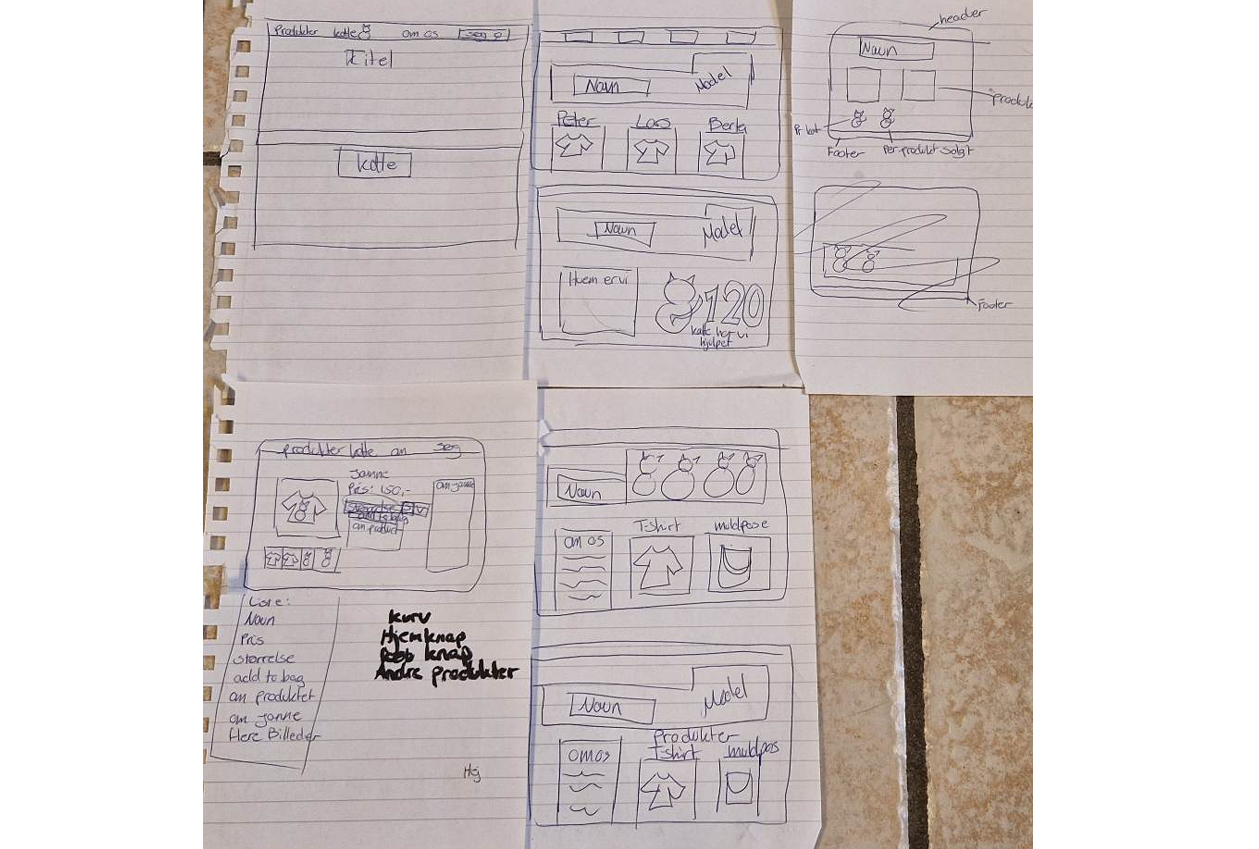 Produkter katte om os søg
Titel
katte
Navn
Model
Peter Lars Berta
Navn
Model
Hvem er vi
120
katte har vi
hjulpet
header
Navn
Footer
Per produkt solgt
Footer
produkter katte om søg
Janne
Pris: 150,-
om janne
størrelse
add to bag
om produkt
Core:
Navn
Pris
størrelse
add to bag
om produktet
om janne
flere Billeder
kurv
Hjem knap
knap
Andre produkter
Hej
Navn
om os
T-shirt
mulepose
Navn
Model
Produkter
om os
T-shirt
mulepos